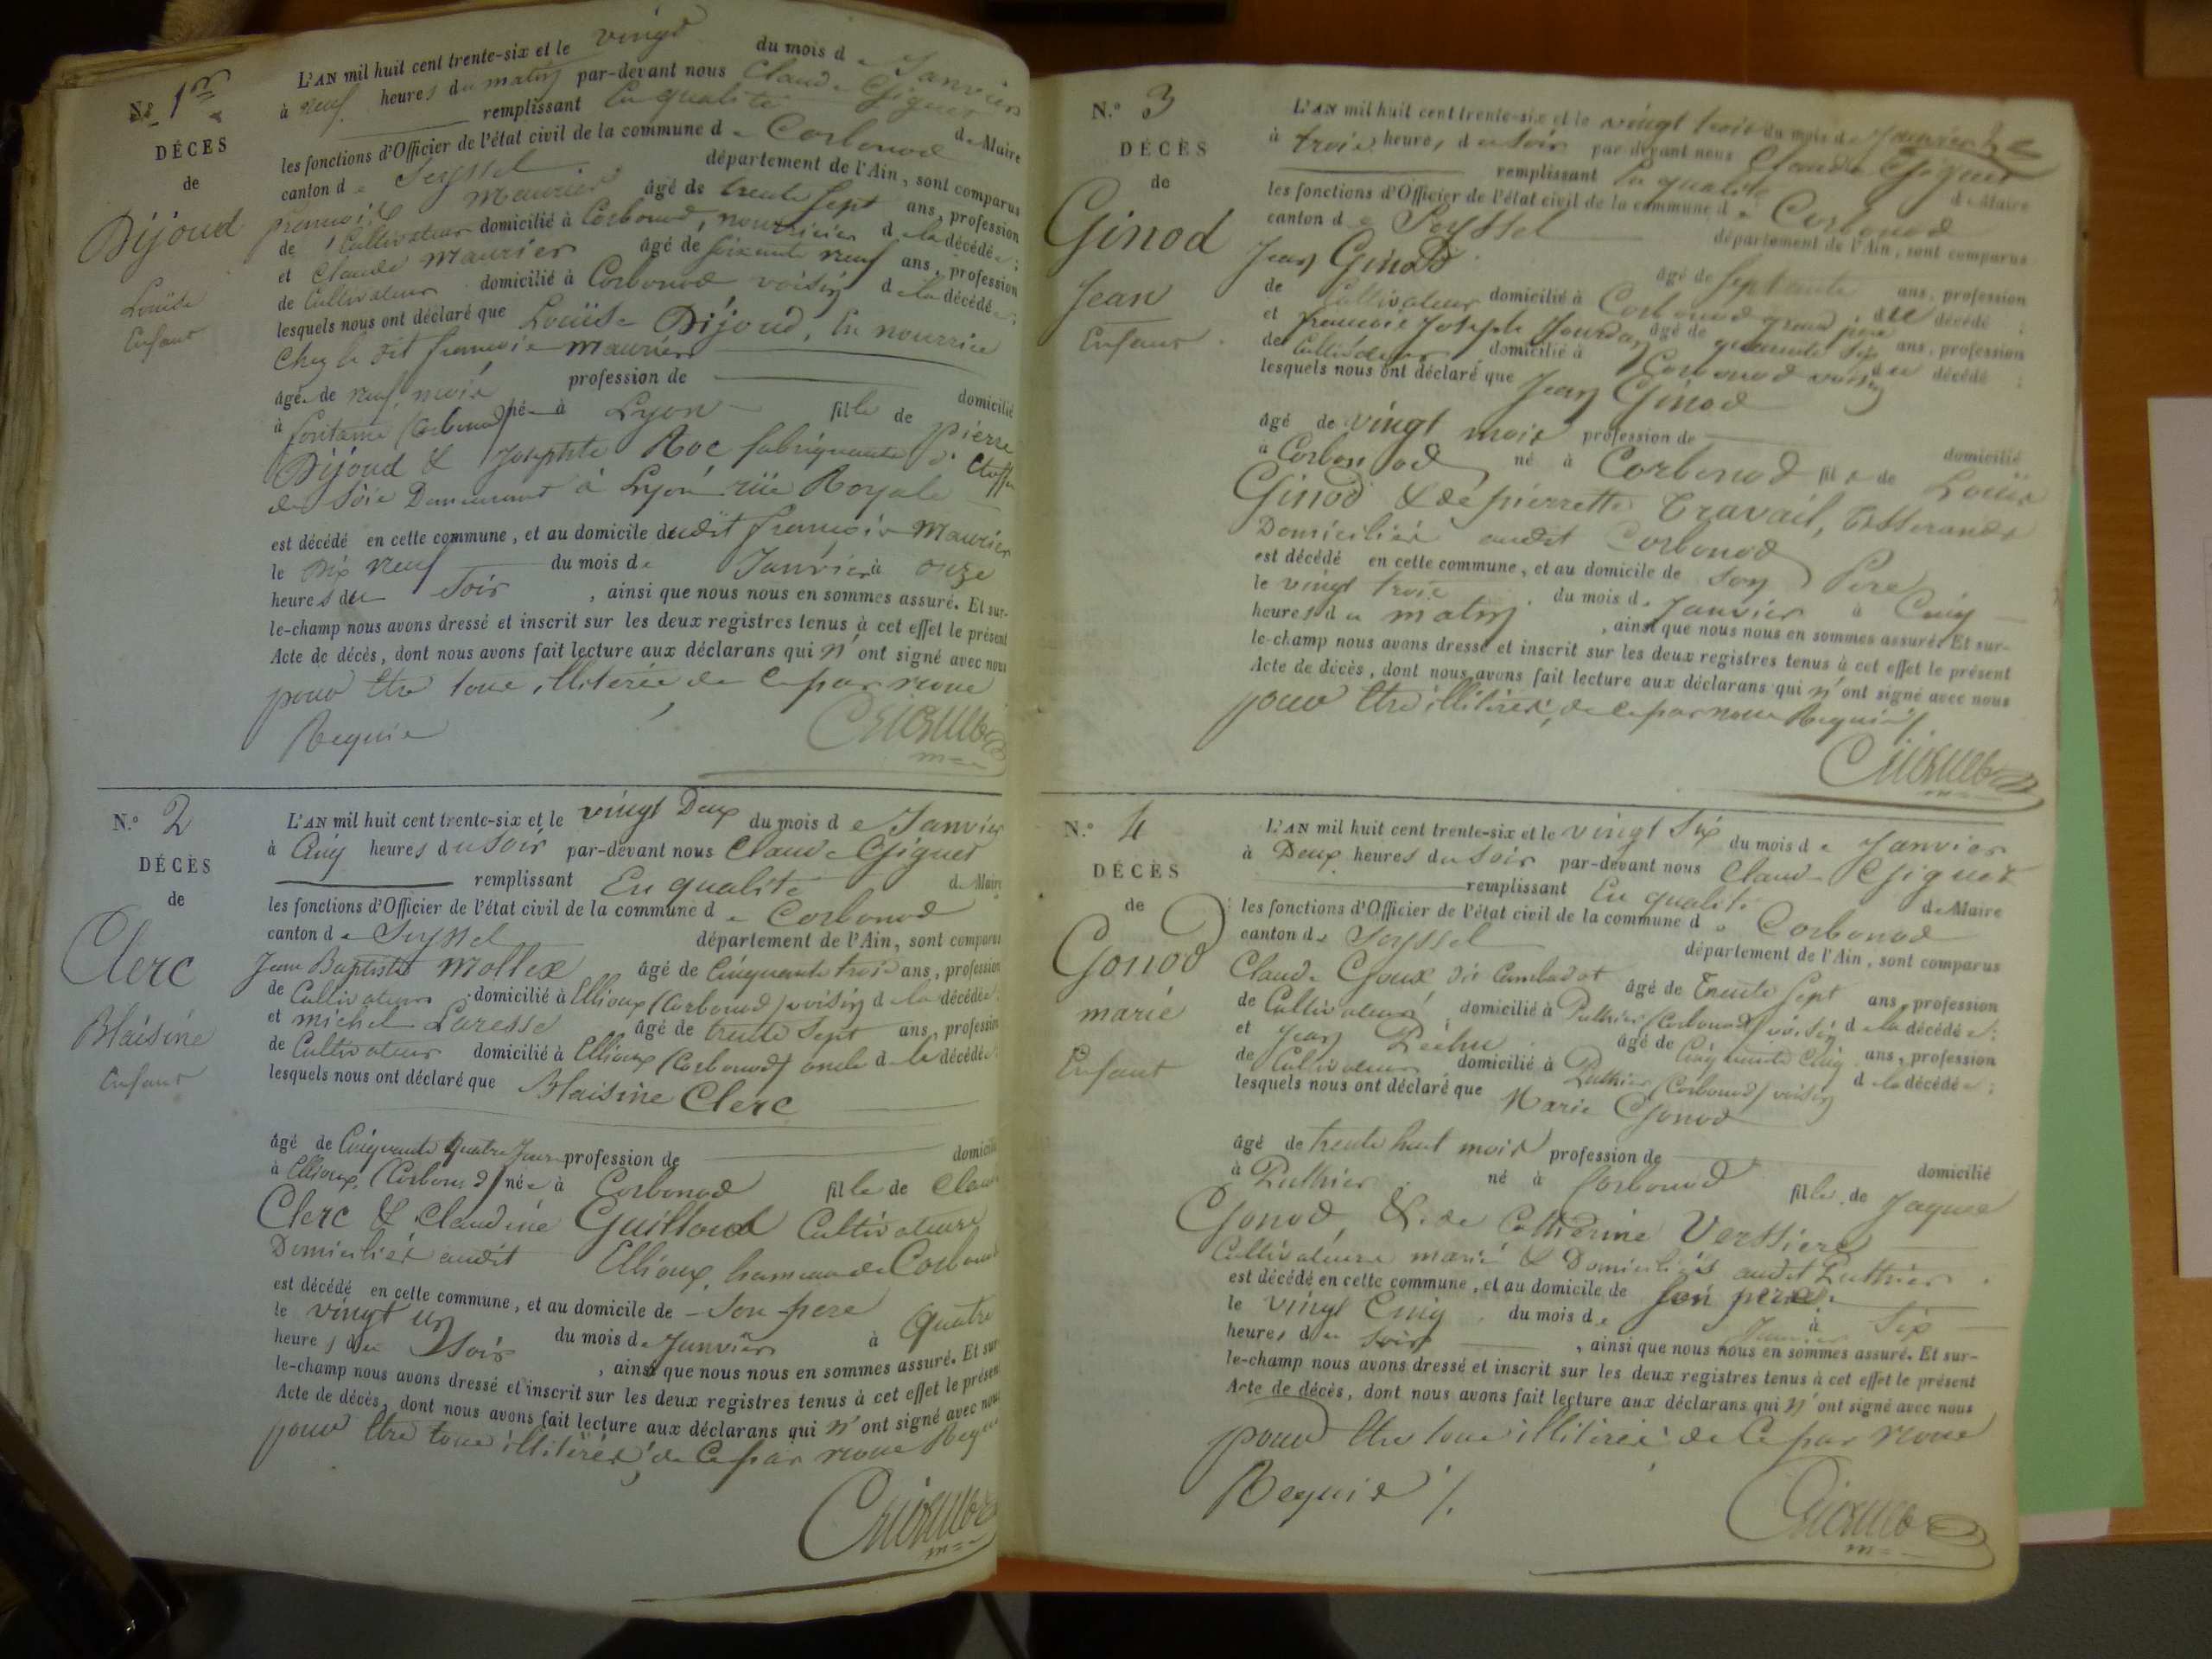 N.º 1er
DÉCES
de
Dijoud
Louise
Enfant
L'AN mil huit cent trente-six et le vingt du mois de Janvier
à neuf heures du matin par-devant nous Claude Giguet
remplissant En qualité de Maire
les fonctions d'Officier de l'état civil de la commune de Corbonod
canton de Seyssel département de l'Ain, sont comparus
françois Maurier âgé de trente sept ans, profession
de Cultivateur domicilié à Corbonod, nourricier de la décédée ;
et Claude Maurier âgé de soixante neuf ans, profession
de Cultivateur domicilié à Corbonod voisin de la décédée ;
lesquels nous ont déclaré que Louise Dijoud, En nourrice
Chez le dit françois Maurier
âgée de neuf mois profession de domicilié
à fontaine (Corbonod) née à Lyon fille de pierre
Dijoud & Josephte Roc fabriquants d'Etoffe
de Soie Demeurant à Lyon rüe Royale
est décédé en cette commune, et au domicile dudit françois Maurier
le Dix neuf du mois de Janvier à onze
heures du Soir, ainsi que nous nous en sommes assuré. Et sur-
le-champ nous avons dressé et inscrit sur les deux registres tenus à cet effet le présent
Acte de décès, dont nous avons fait lecture aux déclarans qui n'ont signé avec nous
pour être tous illiterés de ce par nous
Requis
N.º 2
DÉCÈS
de
Clerc
Blaisine
Enfant
L'AN mil huit cent trente-six et le vingt Deux du mois de Janvier
à Cinq heures du Soir par-devant nous Claude Giguet
remplissant En qualité de Maire
les fonctions d'Officier de l'état civil de la commune de Corbonod
canton de Seyssel département de l'Ain, sont comparus
Jean Baptiste Mollex âgé de Cinquante trois ans, profession
de Cultivateur domicilié à Ellioux (Corbonod) voisin de la décédée ;
et michel Laresse âgé de trente Sept ans, profession
de Cultivateur domicilié à Ellioux (Corbonod) oncle de la décédée ;
lesquels nous ont déclaré que Blaisine Clerc
âgé de Cinquante quatre Jours profession de domicilié
à Ellioux (Corbonod) née à Corbonod fille de Claude
Clerc & Claudine Guilloud Cultivateurs
Domiciliés audit Ellioux, hameau de Corbonod
est décédé en cette commune, et au domicile de Son père
le vingt un du mois de Janvier à Quatre
heures du Soir, ainsi que nous nous en sommes assuré. Et sur-
le-champ nous avons dressé et inscrit sur les deux registres tenus à cet effet le présent
Acte de décès, dont nous avons fait lecture aux déclarans qui n'ont signé avec nous
pour être tous illitérés, de Ce par nous Requis
N.º 3
DÉCÈS
de
Ginod
Jean
Enfant
L'AN mil huit cent trente-six et le vingt trois du mois de Janvier
à trois heures du Soir par devant nous Claude Giguet
remplissant En qualité de Maire
les fonctions d'Officier de l'état civil de la commune de Corbonod
canton de Seyssel département de l'Ain, sont comparus
Jean Ginod âgé de septante ans, profession
de Cultivateur domicilié à Corbonod grand père du décédé ;
et françois Joseph Jourdan âgé de quarante six ans, profession
de Cultivateur domicilié à Corbonod voisin du décédé ;
lesquels nous ont déclaré que Jean Ginod
âgé de vingt mois profession de domicilié
à Corbonod né à Corbonod fils de Louis
Ginod & de pierrette Travail, Tisserands
Domiciliés audit Corbonod
est décédé en cette commune, et au domicile de son Père
le vingt trois du mois de Janvier à Cinq
heures du matin, ainsi que nous nous en sommes assuré. Et sur-
le-champ nous avons dressé et inscrit sur les deux registres tenus à cet effet le présent
Acte de décès, dont nous avons fait lecture aux déclarans qui n'ont signé avec nous
pour être illitérés, de ce par nous Requis
N.º 4
DÉCÈS
de
Gonod
marie
Enfant
L'AN mil huit cent trente-six et le vingt Six du mois de Janvier
à Deux heures du Soir par-devant nous Claude Giguet
remplissant En qualité de Maire
les fonctions d'Officier de l'état civil de la commune de Corbonod
canton de Seyssel département de l'Ain, sont comparus
Claude Goux dit Cambadot âgé de Trente Sept ans, profession
de Cultivateur domicilié à Puthier (Corbonod) voisin de la décédée ;
et Jean Péchu âgé de Cinquante Cinq ans, profession
de Cultivateur domicilié à Puthier (Corbonod) voisin de la décédée ;
lesquels nous ont déclaré que Marie Gonod
âgé de trente huit mois profession de domicilié
à Puthier né à Corbonod fille de Jaques
Gonod, & de Catherine Verssiere
Cultivateurs mariés & Domiciliés audit Puthier
est décédé en cette commune, et au domicile de son père
le vingt Cinq du mois de Janvier à Six
heures du Soir, ainsi que nous nous en sommes assuré. Et sur-
le-champ nous avons dressé et inscrit sur les deux registres tenus à cet effet le présent
Acte de décès, dont nous avons fait lecture aux déclarans qui n'ont signé avec nous
pour être tous illitérés de Ce par nous
Requis